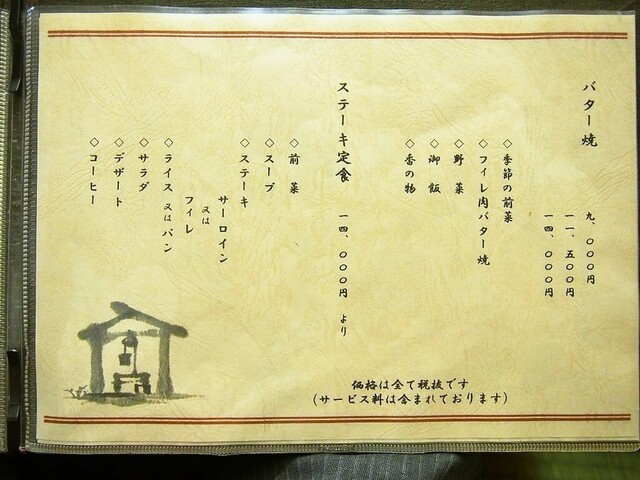 バター焼
九、〇〇〇円
一一、五〇〇円
一四、〇〇〇円
◇季節の前菜
◇フィレ肉バター焼
◇野菜
◇御飯
◇香の物
ステーキ定食 一四、〇〇〇円 より
◇前菜
◇スープ
◇ステーキ
サーロイン
又は
フィレ
◇ライス 又は パン
◇サラダ
◇デザート
◇コーヒー
価格は全て税抜です
(サービス料は含まれております)